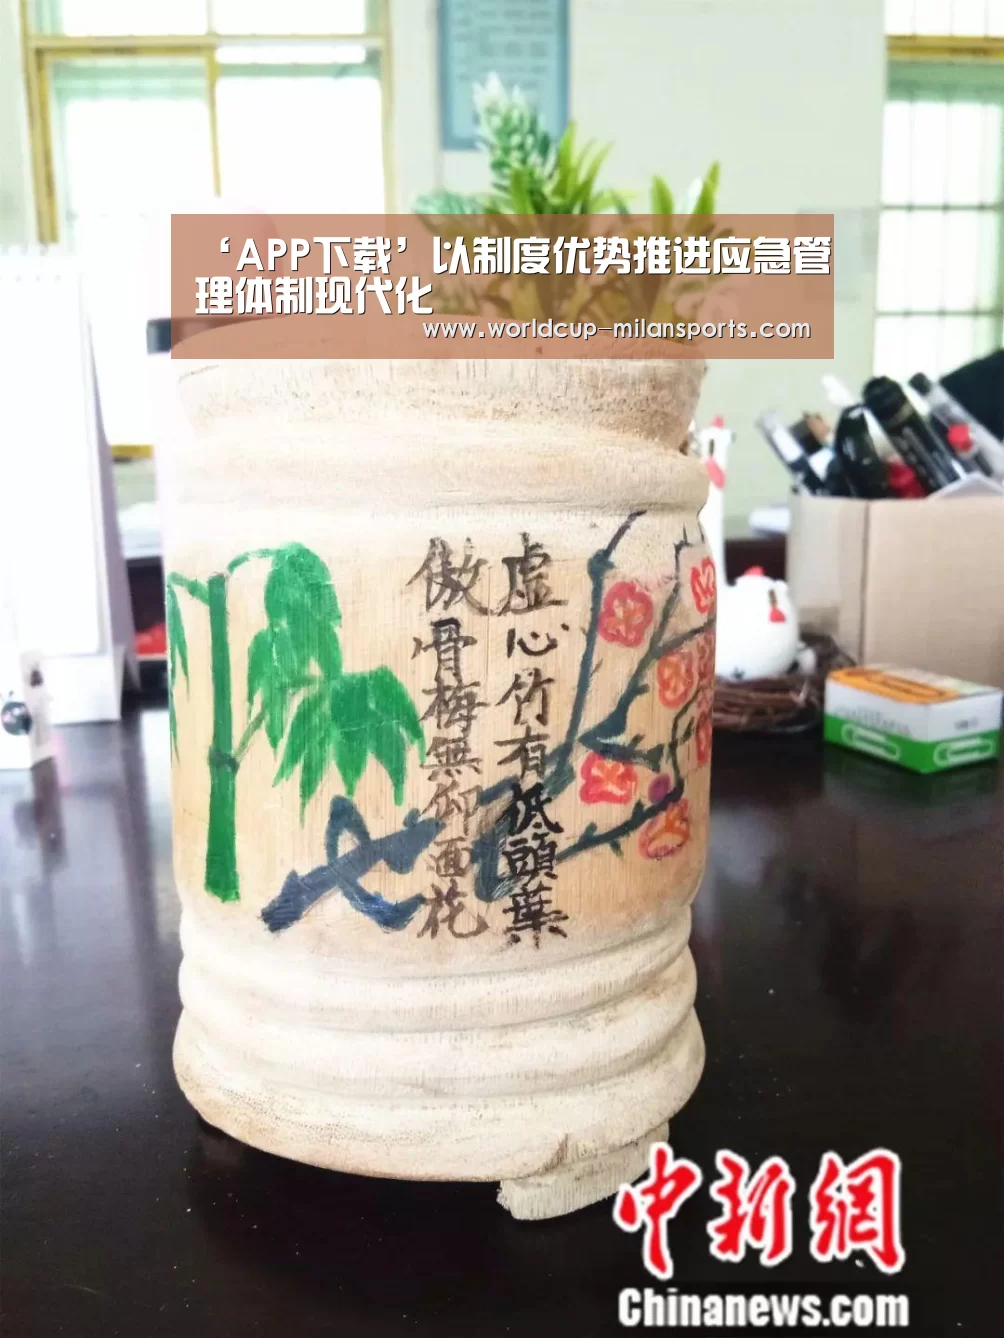 ‘APP下载’以制度优势推进应急管
理体制现代化
www.worldcup-milansports.com
虚心竹有低頭葉
傲骨梅無仰面花
中新網
Chinanews.com